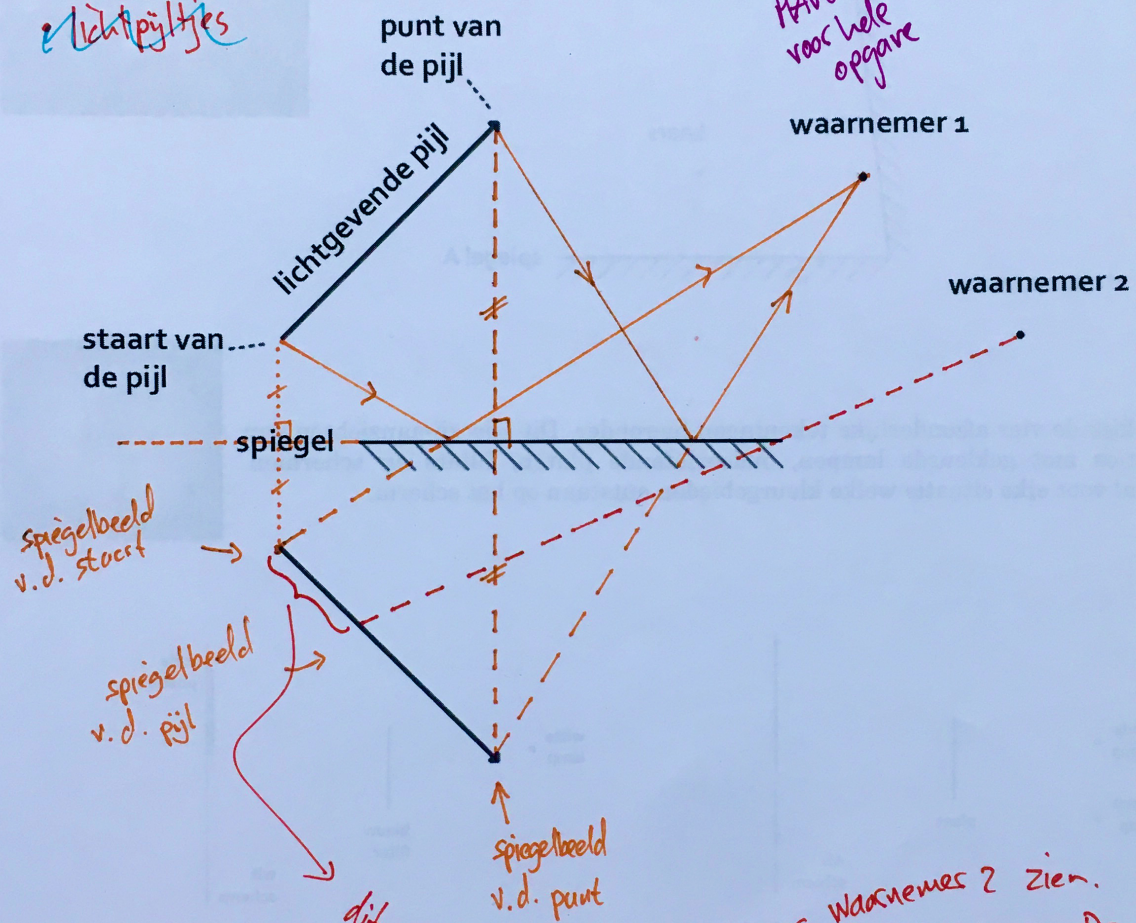 lichtpijltjes
punt van
de pijl
voor hele
opgave
waarnemer 1
lichtgevende pijl
waarnemer 2
staart van
de pijl
spiegel
spiegelbeeld
v.d. staart
spiegelbeeld
v.d. pijl
spiegelbeeld
v.d. punt
waarnemer 2 zien.